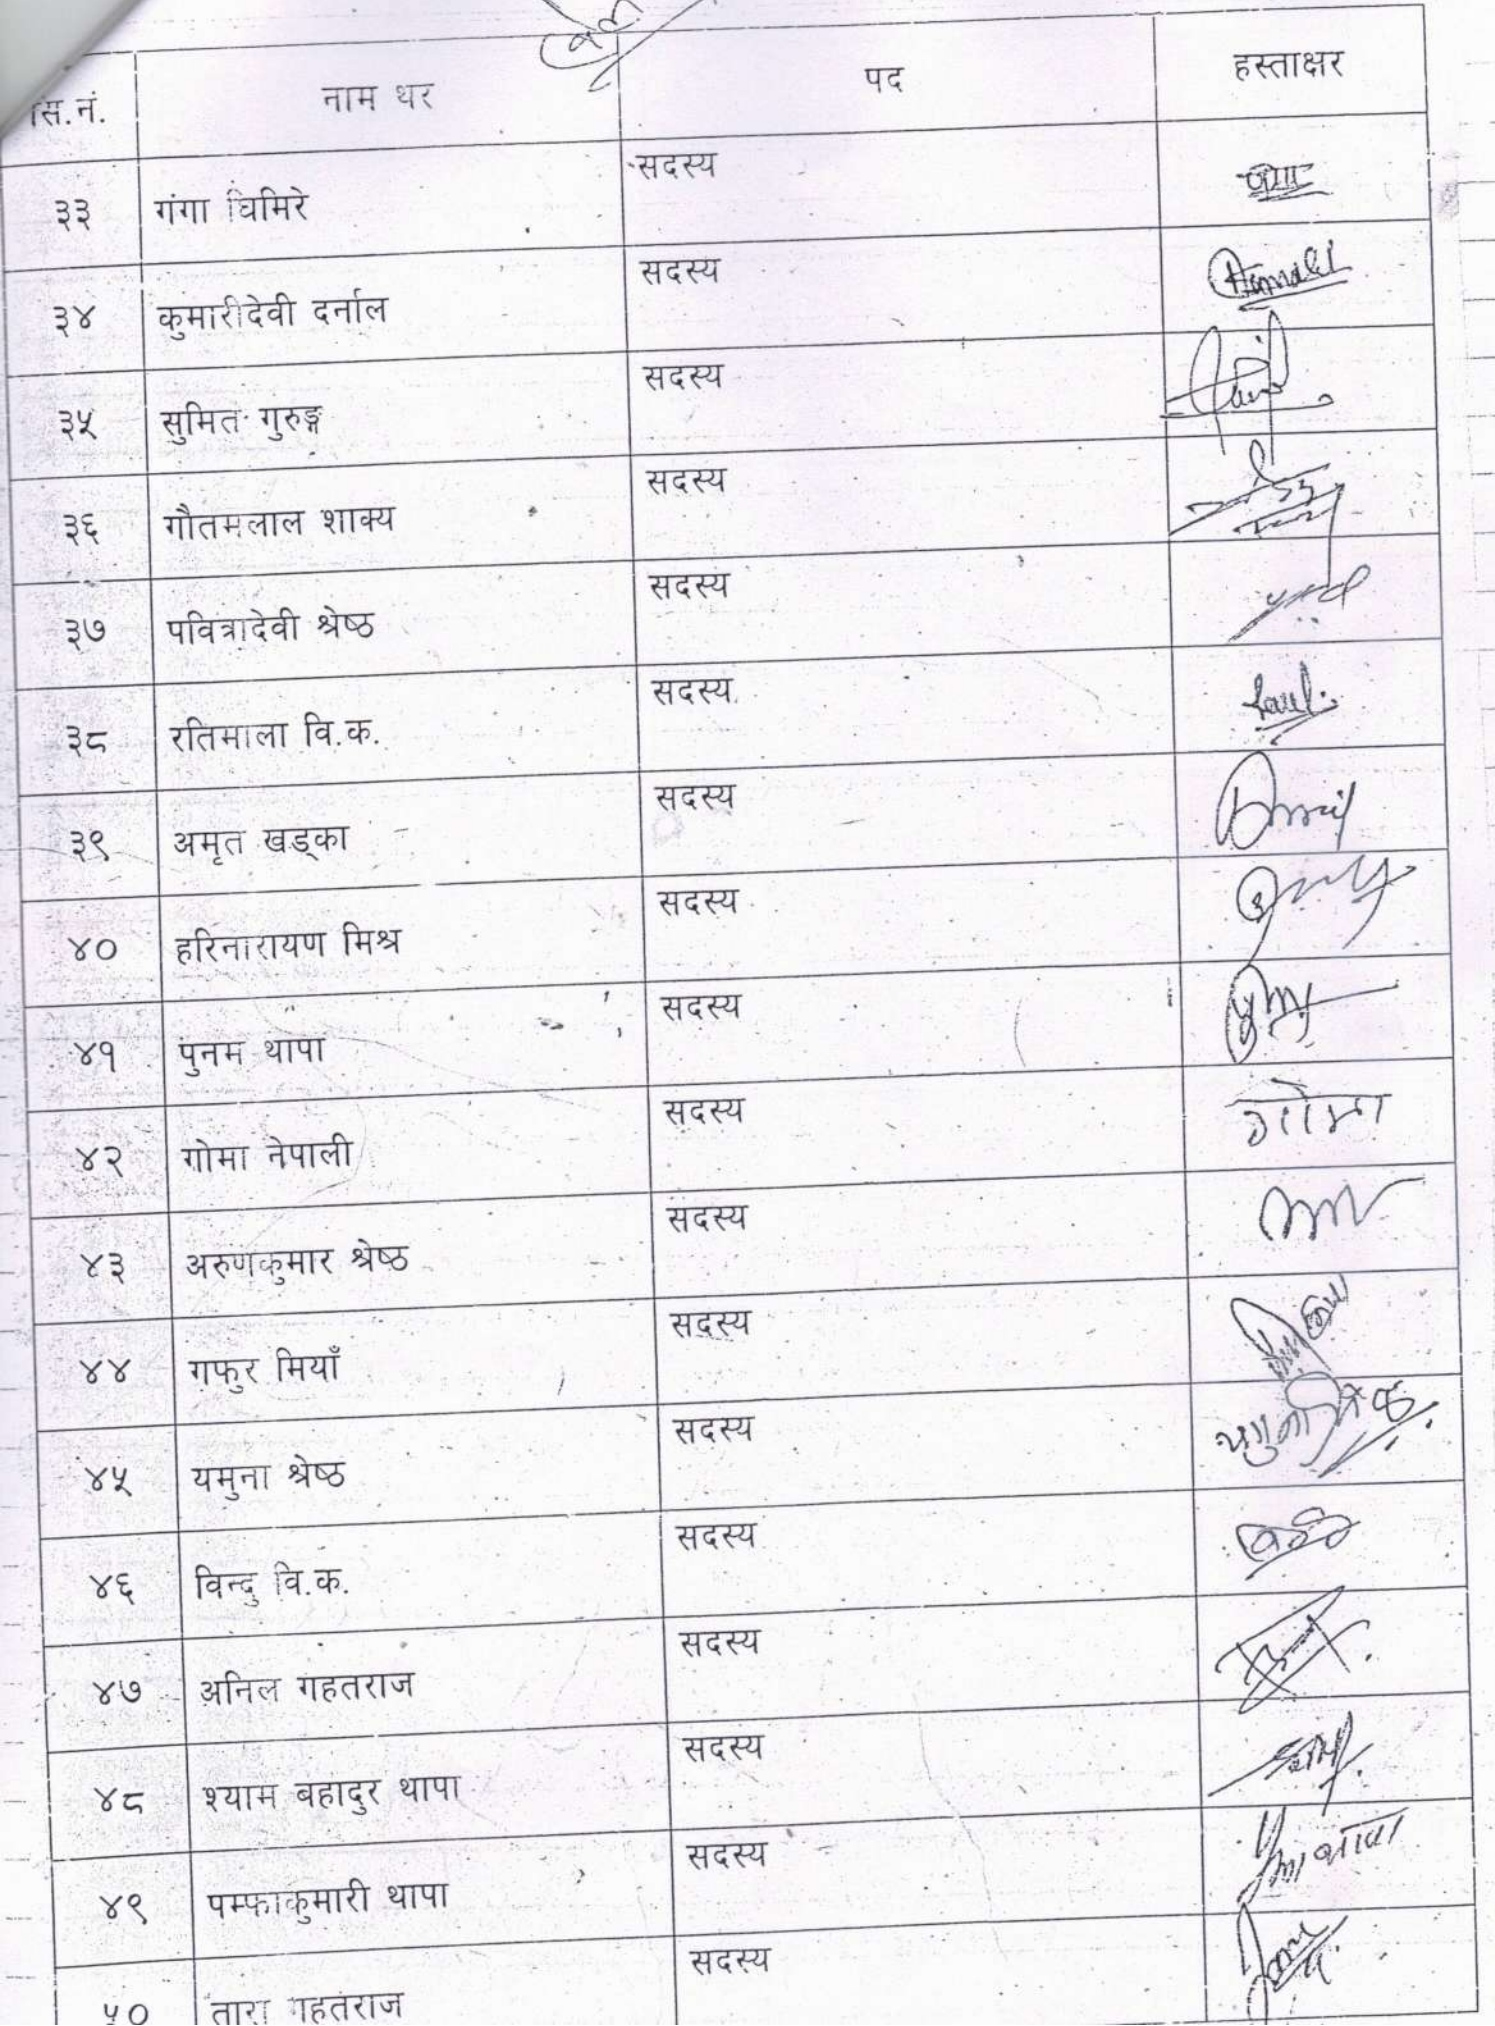 सि.नं. नाम थर पद हस्ताक्षर
३३ गंगा घिमिरे सदस्य
३४ कुमारीदेवी दर्नाल सदस्य
३५ सुमित गुरुङ्ग सदस्य
३६ गौतमलाल शाक्य सदस्य
३७ पवित्रादेवी श्रेष्ठ सदस्य
३८ रतिमाला वि.क. सदस्य
३९ अमृत खड्का सदस्य
४० हरिनारायण मिश्र सदस्य
४१ पुनम थापा सदस्य
४२ गोमा नेपाली सदस्य गोमा
४३ अरुणकुमार श्रेष्ठ सदस्य
४४ गफुर मियाँ सदस्य
४५ यमुना श्रेष्ठ सदस्य
४६ विन्दु वि.क. सदस्य
४७ अनिल गहतराज सदस्य
४८ श्याम बहादुर थापा सदस्य
४९ पम्फाकुमारी थापा सदस्य
५० तारा गहतराज सदस्य